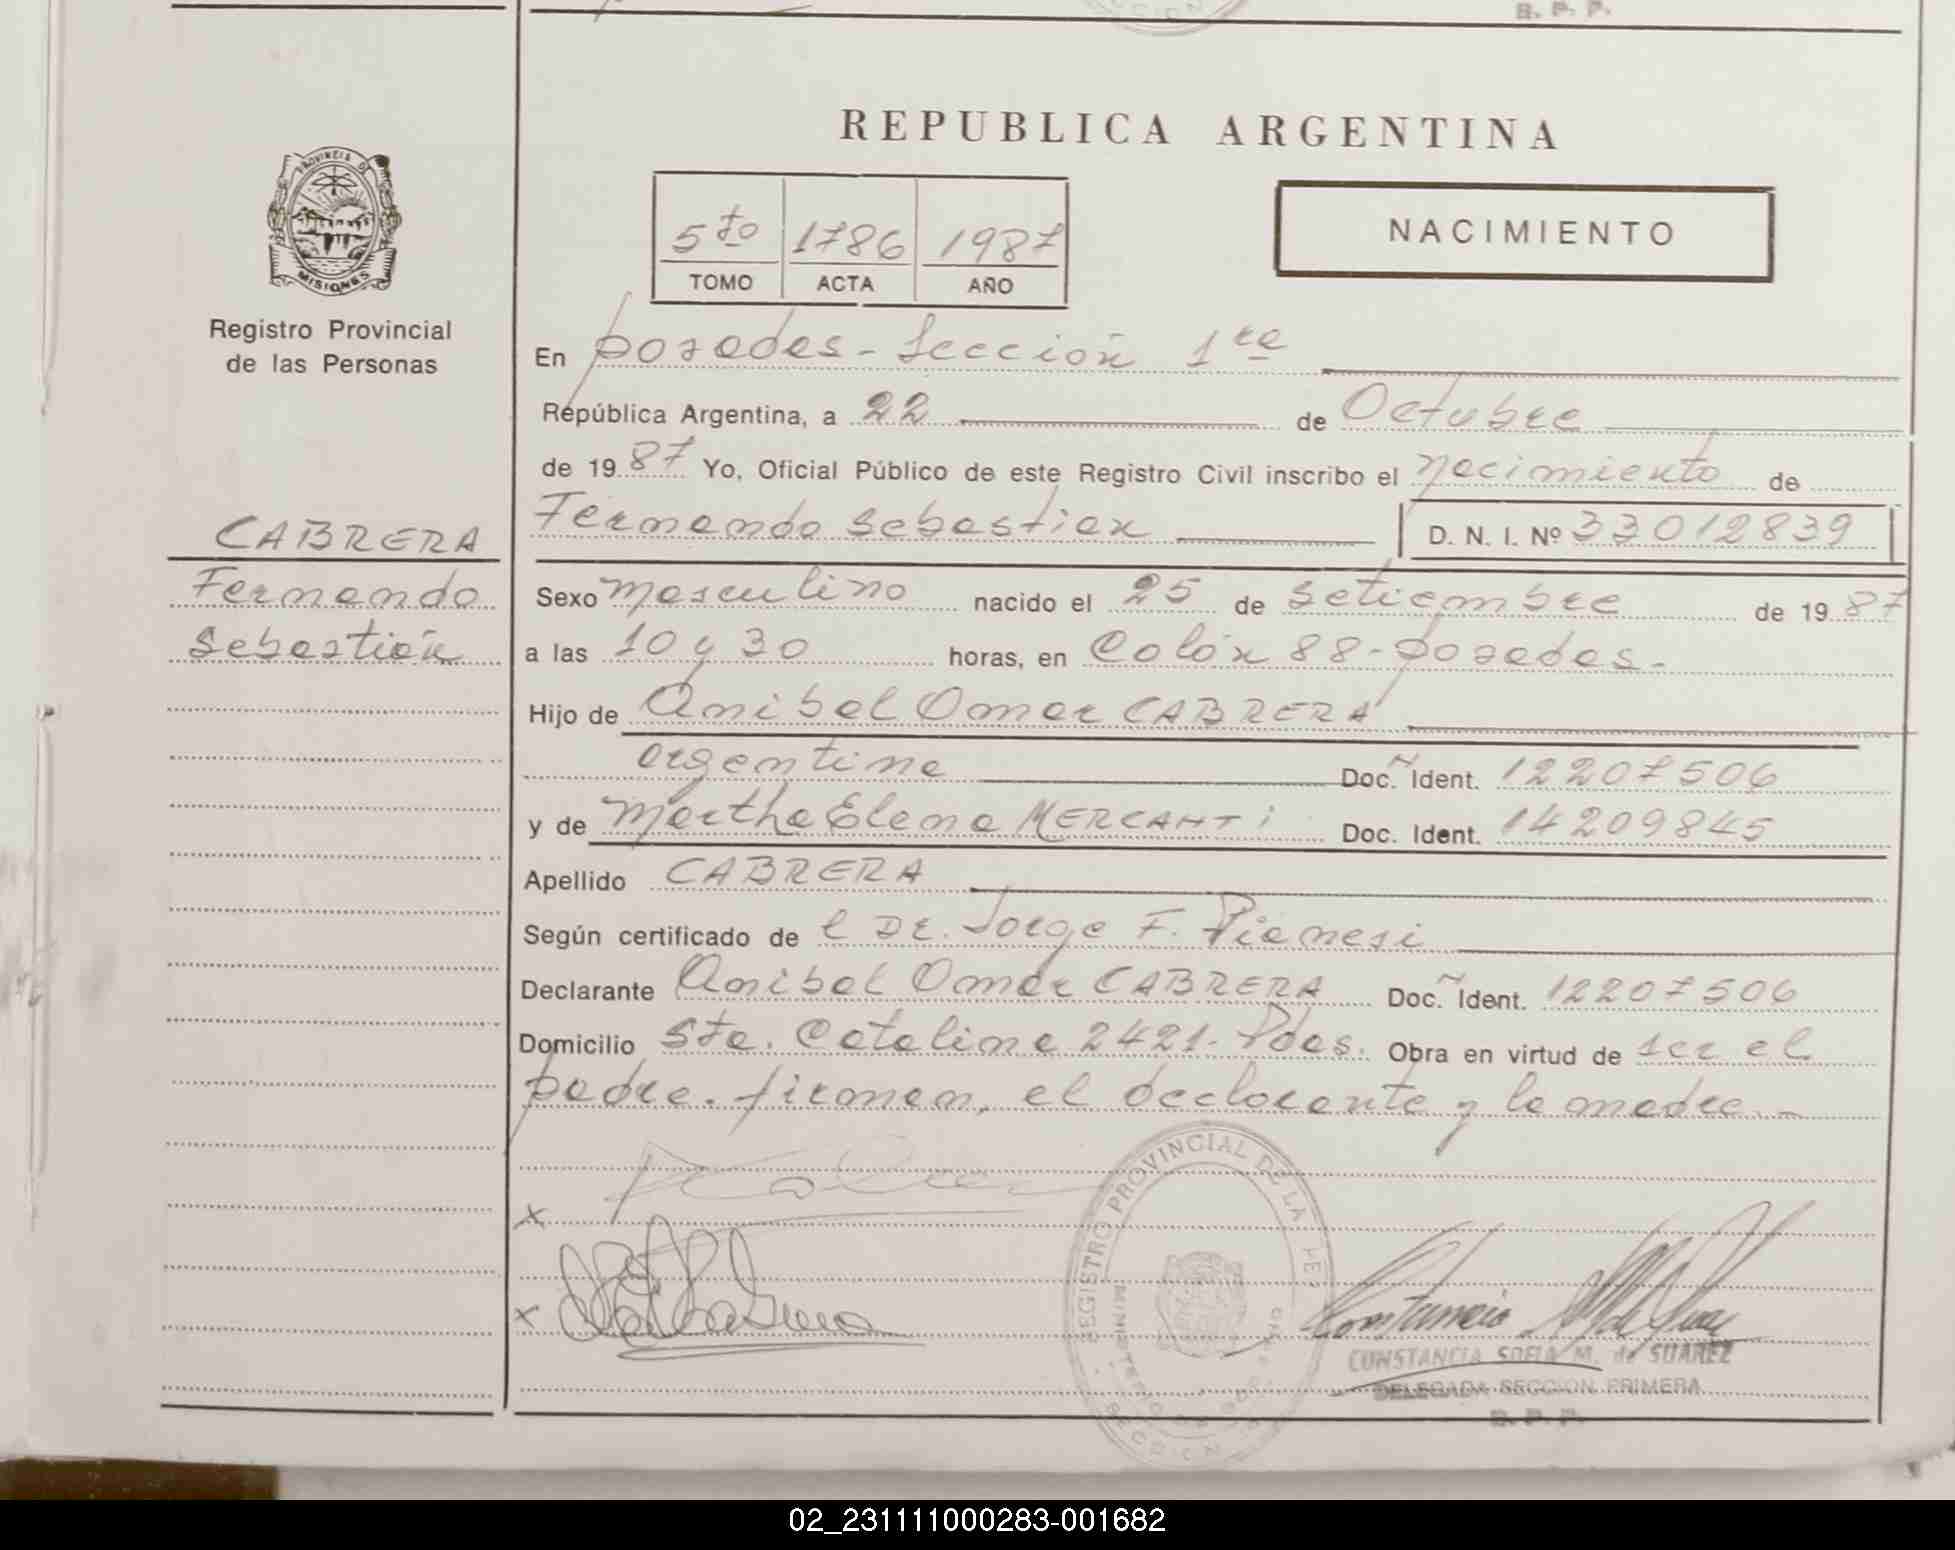 B. P. P.
REPUBLICA ARGENTINA
PROVINCIA DE MISIONES
5to 1786 1987
TOMO ACTA AÑO
NACIMIENTO
Registro Provincial
de las Personas
En posadas - Sección 1ra
República Argentina, a 22 de Octubre
de 1987 Yo, Oficial Público de este Registro Civil inscribo el nacimiento de
Fernando Sebastian D. N. I. Nº 33012839
CABRERA
Fernando
Sebastián
Sexo masculino nacido el 25 de setiembre de 1987
a las 10 y 30 horas, en Colón 88 - posadas.
Hijo de Anibal Omar CABRERA
argentina Doc. Ident. 12207506
y de Martha Elena MERCANTI Doc. Ident. 14209845
Apellido CABRERA
Según certificado de l Dr. Jorge F. Pianesi
Declarante Anibal Omar CABRERA Doc. Ident. 12207506
Domicilio Sta. Catalina 2421 - Pdas. Obra en virtud de ser el
padre. firman, el declarante y la madre. -
x
x
REGISTRO PROVINCIAL DE LA
CONSTANCIA SOFIA M. de SUAREZ
DELEGADA SECCION PRIMERA
B. P. P.
02_231111000283-001682